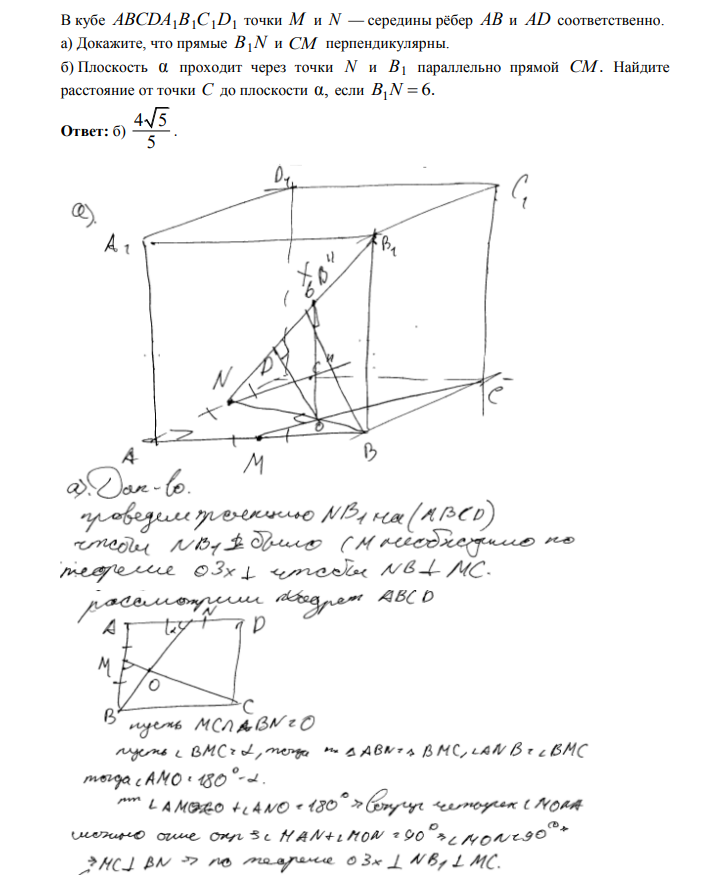 В кубе ABCDA₁B₁C₁D₁ точки M и N — середины рёбер AB и AD соответственно.
а) Докажите, что прямые B₁N и CM перпендикулярны.
б) Плоскость α проходит через точки N и B₁ параллельно прямой CM. Найдите
расстояние от точки C до плоскости α, если B₁N = 6.
Ответ: б) 4√5/5.
а).
D₁
C₁
A₁
B₁
B"
N
D
C
O
A
M
B
а). Док-во.
проведем проекцию NB₁ на (ABCD)
чтобы NB₁ ⊥ было CM необходимо по
теореме о 3х ⊥ чтобы NB ⊥ MC.
рассмотрим квадрат ABCD
A N D
M
O
B C
пусть MC∩BN = O
пусть ∠BMC = α, тогда △ABN = △BMC, ∠ANB = ∠BMC
тогда ∠AMO = 180° - α.
∠AMO + ∠ANO = 180° ⇒ вокруг четырех MONA
можно опис окр ⇒ ∠MAN + ∠MON = 90° ⇒ ∠MON = 90°
⇒ MC ⊥ BN ⇒ по теореме о 3х ⊥ NB₁ ⊥ MC.